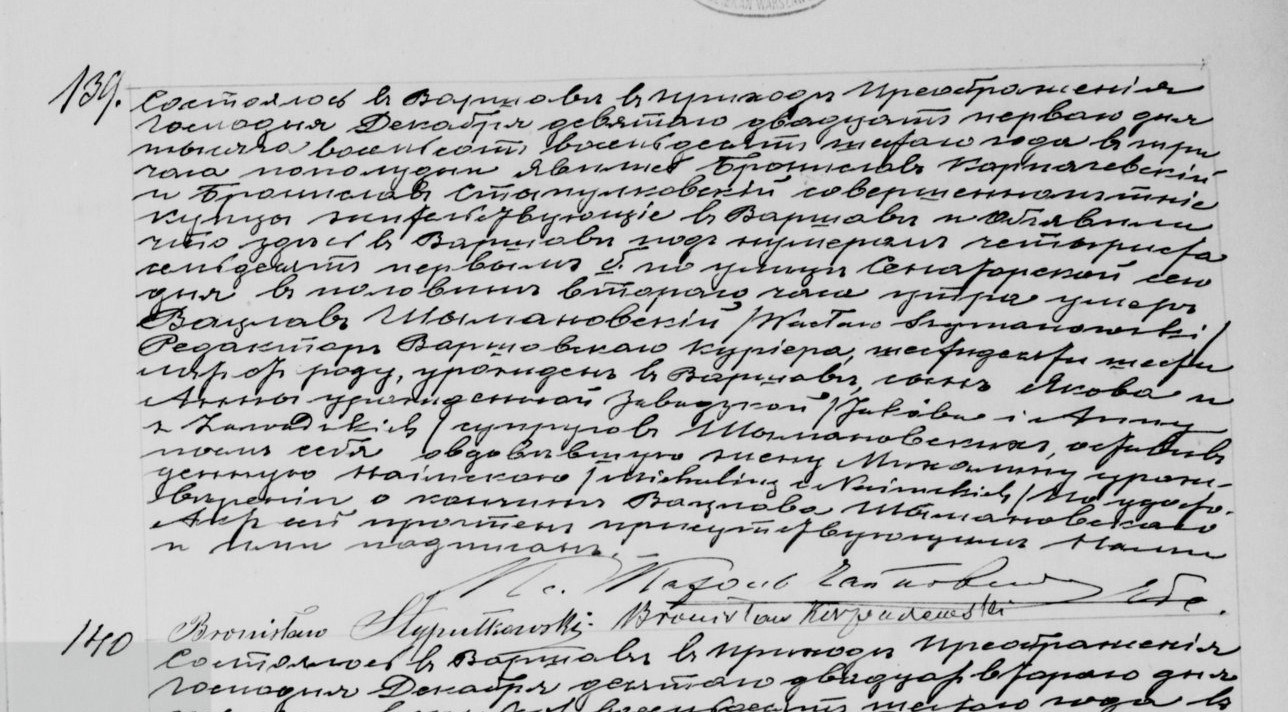 139.
Состоялось въ Варшавѣ въ приходѣ Преображенія
Господня Декабря девятаго двадцать перваго дня
тысяча восемьсотъ восемьдесятъ шестаго года въ три
часа пополудни явились Брониславъ Карпачевскій
и Брониславъ Стыпулковскій совершеннолѣтніе
купцы жительствующіе въ Варшавѣ и объявили
что здѣсь въ Варшавѣ подъ нумеромъ четыреста
семьдесятъ первымъ по улицѣ Сенаторской сего
дня въ половинѣ втораго часа утра умеръ
Вацлавъ Шымановскій /Wacław Szymanowski/
Редакторъ Варшавскаго Курiера, шестидесяти шести
лѣтъ отъ роду, урожденъ въ Варшавѣ, сынъ Якова и
Анны урожденной Завадзкой /Jakóba i Anny
z Zawadzkich/ супруговъ Шымановскихъ, оставивъ
послѣ себя овдовѣвшую жену Михалину урож-
денную Наимскою /Michalinę z Naimskich/ По удосто-
вѣреніи о кончинѣ Вацлава Шымановскаго
Актъ сей прочтенъ присутствующимъ нами
и ими подписанъ.
Кс.
Bronisław Stypułkowski Bronisław
140
Состоялось въ Варшавѣ въ приходѣ Преображенія
Господня Декабря десятаго двадцать втораго дня
восемьдесятъ шестаго года въ